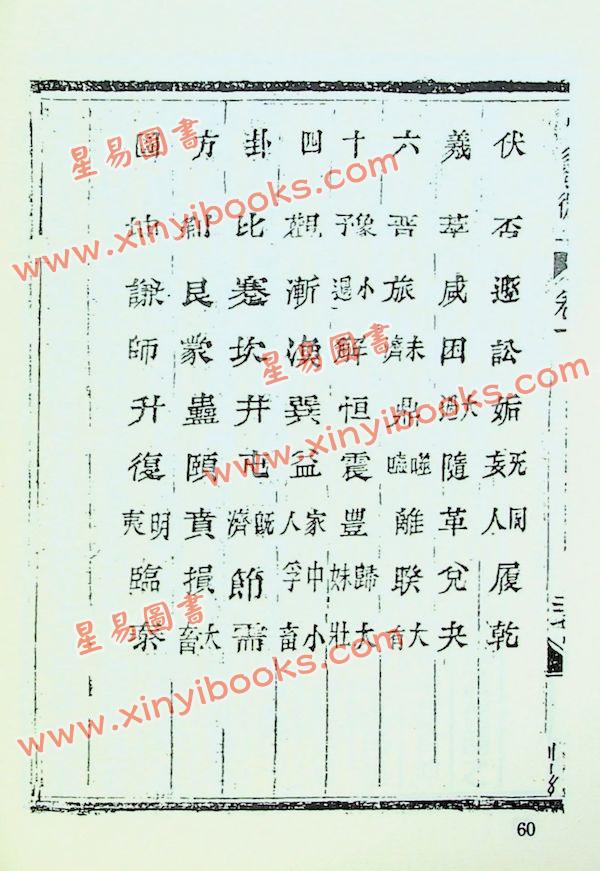 伏羲六十四卦方圖
否遯訟姤无妄同人履乾
萃咸困大過隨革兌夬
晉旅未濟鼎噬嗑離睽大有
豫小過解恒震豐歸妹大壯
觀漸渙巽益家人中孚小畜
比蹇坎井屯既濟節需
剝艮蒙蠱頤賁損大畜
坤謙師升復明夷臨泰
卷一
60
星易圖書
www.xinyibooks.com
星易圖書
www.xinyibooks.com
星易圖書
www.xinyibooks.com